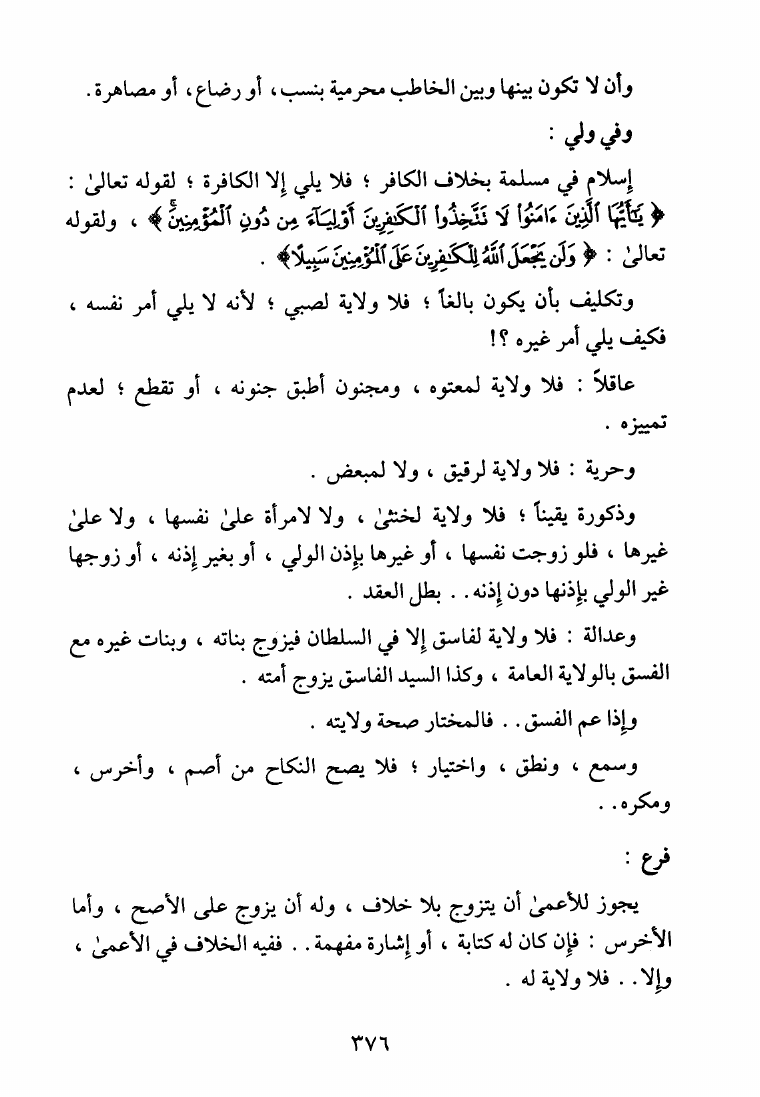 وأن لا تكون بينها وبين الخاطب محرمية بنسب ، أو رضاع ، أو مصاهرة .
وفي ولي :
إسلام في مسلمة بخلاف الكافر ؛ فلا يلي إلا الكافرة ؛ لقوله تعالىٰ :
﴿ يَٰٓأَيُّهَا ٱلَّذِينَ ءَامَنُوا۟ لَا تَتَّخِذُوا۟ ٱلْكَٰفِرِينَ أَوْلِيَآءَ مِن دُونِ ٱلْمُؤْمِنِينَۚ ﴾ ، ولقوله
تعالىٰ : ﴿ وَلَن يَجْعَلَ ٱللَّهُ لِلْكَٰفِرِينَ عَلَى ٱلْمُؤْمِنِينَ سَبِيلًا ﴾ .
وتكليف بأن يكون بالغاً ؛ فلا ولاية لصبي ؛ لأنه لا يلي أمر نفسه ،
فكيف يلي أمر غيره ؟!
عاقلاً : فلا ولاية لمعتوه ، ومجنون أطبق جنونه ، أو تقطع ؛ لعدم
تمييزه .
وحرية : فلا ولاية لرقيق ، ولا لمبعض .
وذكورة يقيناً ؛ فلا ولاية لخنثىٰ ، ولا لامرأة علىٰ نفسها ، ولا علىٰ
غيرها ، فلو زوجت نفسها ، أو غيرها بإذن الولي ، أو بغير إذنه ، أو زوجها
غير الولي بإذنها دون إذنه . . بطل العقد .
وعدالة : فلا ولاية لفاسق إلا في السلطان فيزوج بناته ، وبنات غيره مع
الفسق بالولاية العامة ، وكذا السيد الفاسق يزوج أمته .
وإذا عم الفسق . . فالمختار صحة ولايته .
وسمع ، ونطق ، واختيار ؛ فلا يصح النكاح من أصم ، وأخرس ،
ومكره . .
فرع :
يجوز للأعمىٰ أن يتزوج بلا خلاف ، وله أن يزوج على الأصح ، وأما
الأخرس : فإن كان له كتابة ، أو إشارة مفهمة . . ففيه الخلاف في الأعمىٰ ،
وإلا . . فلا ولاية له .
٣٧٦